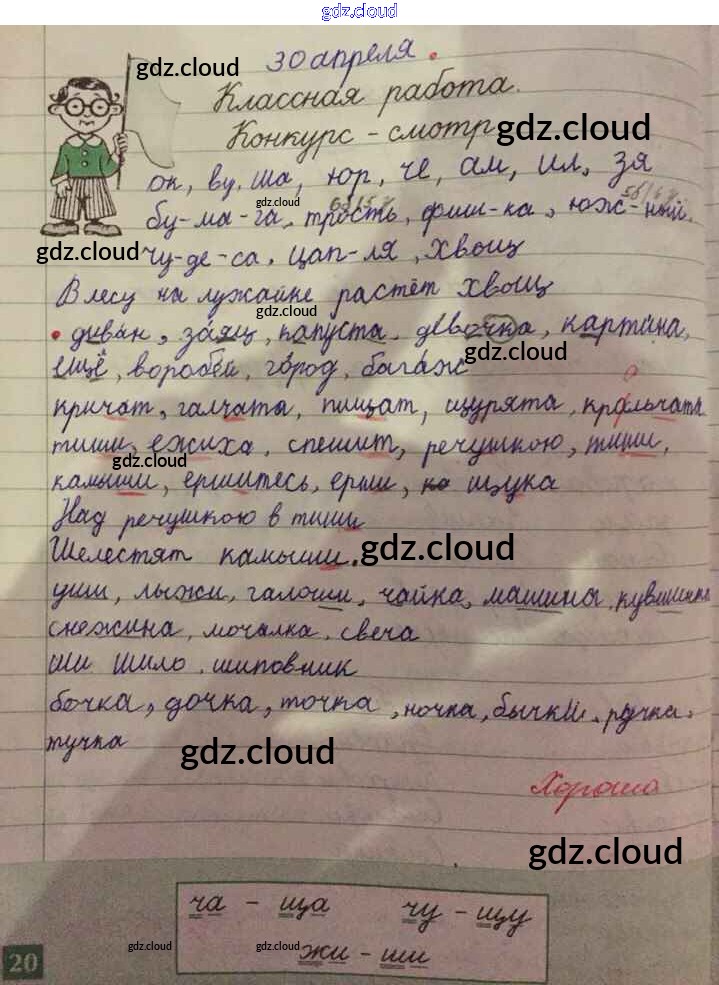 gdz.cloud
30 апреля.
gdz.cloud
Классная работа.
Конкурс - смотр
gdz.cloud
ок, ву, ша, юр, че, ам, ил, зя
gdz.cloud
бу-ма-га, трость, фиш-ка, юж-ный
gdz.cloud
чу-де-са, цап-ля, хвощ
В лесу на лужайке растёт хвощ
диван, заяц, капуста, девочка, картина,
gdz.cloud
ещё, воробей, город, багаж
кричат, галчата, пищат, щурята, крольчата
тиши, ежиха, спешит, речушкою, тиши,
gdz.cloud
камыши, ершитесь, ерши, щука
Над речушкою в тиши
Шелестят камыши.
gdz.cloud
уши, лыжи, галоши, чайка, машины, кувшинка
снежина, мочалка, свеча
ши шило, шиповник
бочка, дочка, точка, ночка, бычки, ручка,
тучка
gdz.cloud
Хорошо
gdz.cloud
ча - ща чу - щу
жи - ши
gdz.cloud gdz.cloud
20